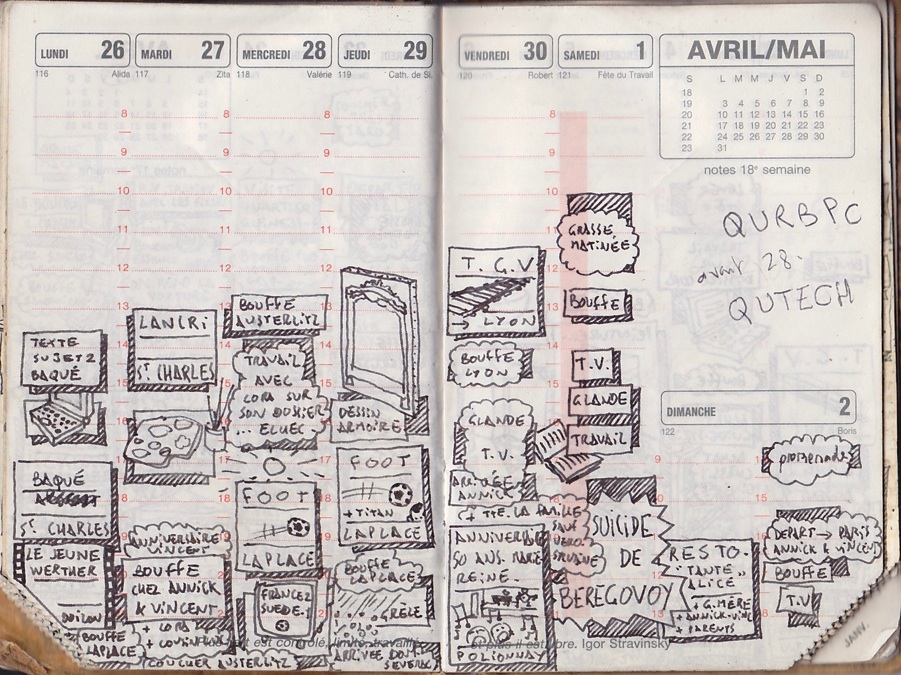 LUNDI 26
116 Alida
MARDI 27
117 Zita
MERCREDI 28
118 Valérie
JEUDI 29
119 Cath. de Si.
8
9
10
11
12
13
14
15
16
17
18
19
TEXTE
SUJET 2
BAQUÉ
BAQUÉ
ST CHARLES
LE JEUNE
WERTHER
DOILON
BOUFFE
LAPLACE
LANCRI
ST CHARLES
ANNIVERSAIRE
VINCENT
BOUFFE
CHEZ ANNICK
& VINCENT
+ LORA
BOUFFE
AUSTERLITZ
TRAVAIL
AVEC
LORA SUR
SON DOSIER
... ELUEC
FOOT
LAPLACE
FRANCE 2
SUEDE. 1
COUCHER AUSTERLITZ
DESSIN
ARMOIRE
FOOT
+ TITAN
LAPLACE
BOUFFE
LAPLACE
GRÈLE
ARRIVÉE
tout est contrôlé, limité, travaillé
VENDREDI 30
120 Robert
SAMEDI 1
121 Fête du Travail
8
9
10
11
12
13
14
15
T.G.V
→ LYON
BOUFFE
LYON
GLANDE
T.V.
ARRIVÉE
ANNICK
+ TTE LA FAMILLE
SAUF
ANNIVERSAIRE
50 ANS. MARIE
REINE.
POLIONNAY
GRASSE
MATINÉE
BOUFFE
T.V.
GLANDE
TRAVAIL
SUICIDE
DE
BEREGOVOY
et plus il est libre. Igor Stravinsky
AVRIL/MAI
S L M M J V S D
18 1 2
19 3 4 5 6 7 8 9
20 10 11 12 13 14 15 16
21 17 18 19 20 21 22 23
22 24 25 26 27 28 29 30
23 31
notes 18e semaine
QURBPC
avant 28.
QUTECH
DIMANCHE 2
122 Boris
9
15
promenade
RESTO.
"TANTE
ALICE"
+ G.MÈRE
+ ANNICK-VINC
+ PARENTS
DEPART → PARIS
ANNICK & VINCENT
BOUFFE
T.V
JANV.